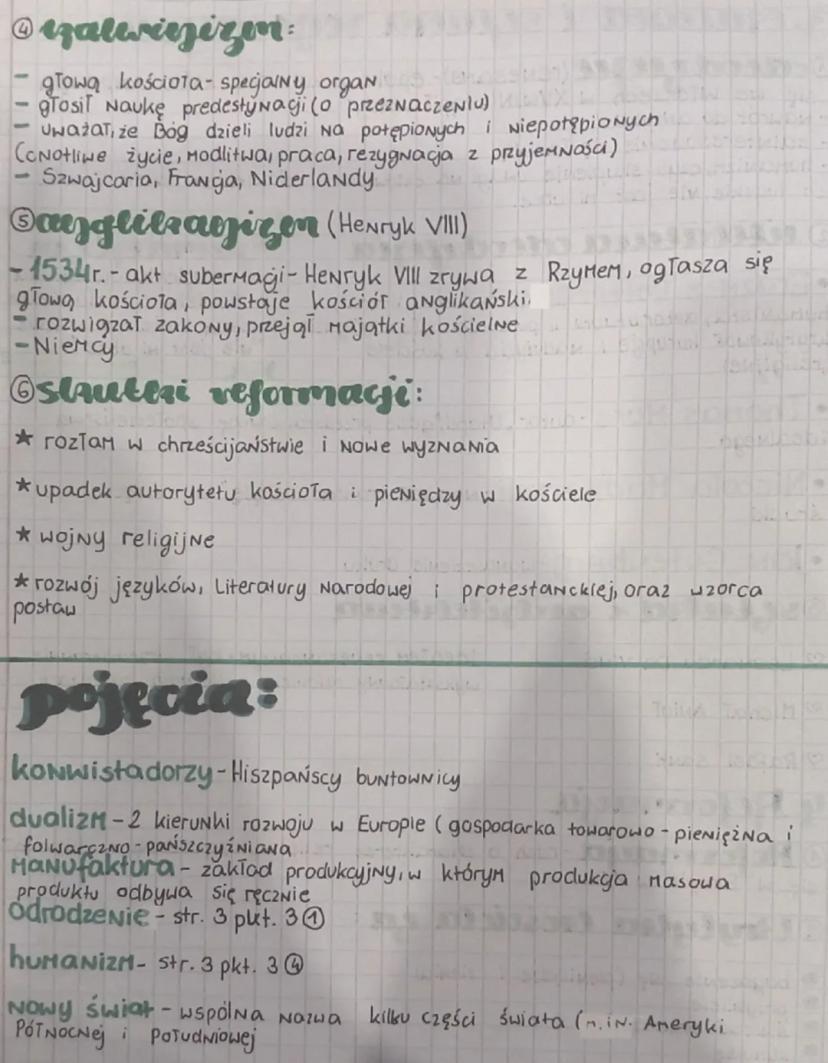 ④ kalwinizm:
- głową kościoła - specjalny organ
- głosił naukę predestynacji (o przeznaczeniu)
- uważał, że Bóg dzieli ludzi na potępionych i niepotępionych
(cnotliwe życie, modlitwa, praca, rezygnacja z przyjemności)
- Szwajcaria, Francja, Niderlandy
⑤ anglikanizm (Henryk VIII)
- 1534r. - akt supermacji - Henryk VIII zrywa z Rzymem, ogłasza się
głową kościoła, powstaje kościół anglikański.
- rozwiązał zakony, przejął majątki kościelne
- Niemcy
⑥ skutki reformacji:
* rozłam w chrześcijaństwie i nowe wyznania
* upadek autorytetu kościoła i pieniędzy w kościele
* wojny religijne
* rozwój języków, literatury narodowej i protestanckiej, oraz wzorca
postaw
pojęcia:
konwistadorzy - Hiszpańscy buntownicy
dualizm - 2 kierunki rozwoju w Europie (gospodarka towarowo - pieniężna i
folwarczno - pańszczyźniana
manufaktura - zakład produkcyjny, w którym produkcja masowa
produktu odbywa się ręcznie
odrodzenie - str. 3 pkt. 3 ①
humanizm - str. 3 pkt. 3 ④
nowy świat - wspólna nazwa kilku części świata (m.in. Ameryki
Północnej i Południowej